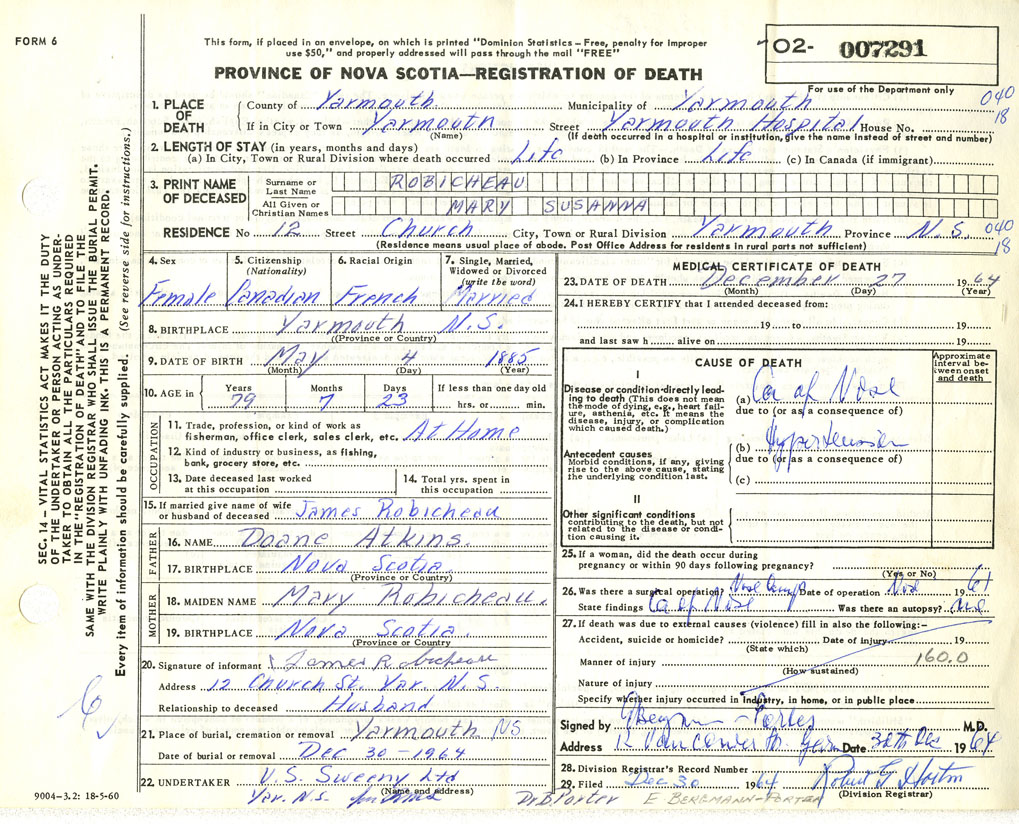 FORM 6
This form, if placed in an envelope, on which is printed "Dominion Statistics – Free, penalty for improper
use $50," and properly addressed will pass through the mail "FREE"
02- 007291
PROVINCE OF NOVA SCOTIA—REGISTRATION OF DEATH
For use of the Department only
040
18
1. PLACE OF DEATH
County of Yarmouth Municipality of Yarmouth
If in City or Town Yarmouth Street Yarmouth Hospital House No.
(Name) (If death occurred in a hospital or institution, give the name instead of street and number)
2. LENGTH OF STAY (in years, months and days)
(a) In City, Town or Rural Division where death occurred Life (b) In Province Life (c) In Canada (if immigrant)
3. PRINT NAME OF DECEASED
Surname or Last Name ROBICHEAU
All Given or Christian Names MARY SUSANNA
RESIDENCE No 12 Street Church City, Town or Rural Division Yarmouth Province N.S.
040
18
(Residence means usual place of abode. Post Office Address for residents in rural parts not sufficient)
4. Sex Female
5. Citizenship (Nationality) Canadian
6. Racial Origin French
7. Single, Married, Widowed or Divorced (write the word) Married
8. BIRTHPLACE Yarmouth N.S.
(Province or Country)
9. DATE OF BIRTH May 4 1885
(Month) (Day) (Year)
10. AGE in Years 79 Months 7 Days 23 If less than one day old hrs. or min.
OCCUPATION
11. Trade, profession, or kind of work as
fisherman, office clerk, sales clerk, etc. At Home
12. Kind of industry or business, as fishing,
bank, grocery store, etc.
13. Date deceased last worked
at this occupation
14. Total yrs. spent in
this occupation
15. If married give name of wife
or husband of deceased James Robicheau
FATHER
16. NAME Doane Atkins.
17. BIRTHPLACE Nova Scotia
(Province or Country)
MOTHER
18. MAIDEN NAME Mary Robicheau.
19. BIRTHPLACE Nova Scotia.
(Province or Country)
20. Signature of informant James Robicheau
Address 12 Church St. Yar. N.S.
Relationship to deceased Husband
21. Place of burial, cremation or removal Yarmouth NS
Date of burial or removal Dec 30 - 1964
22. UNDERTAKER V.S. Sweeny Ltd
(Name and address)
Yar. N.S.
9004-3.2: 18-5-60
MEDICAL CERTIFICATE OF DEATH
23. DATE OF DEATH December 27 1964
(Month) (Day) (Year)
24. I HEREBY CERTIFY that I attended deceased from:
19 to 19
and last saw h alive on 19
CAUSE OF DEATH
Approximate interval between onset and death
I
Disease or condition directly leading to death (This does not mean the mode of dying, e.g., heart failure, asthenia, etc. It means the disease, injury, or complication which caused death.)
(a) Ca of Nose
due to (or as a consequence of)
Antecedent causes
Morbid conditions, if any, giving rise to the above cause, stating the underlying condition last.
(b) Hypertension
due to (or as a consequence of)
(c)
II
Other significant conditions
contributing to the death, but not related to the disease or condition causing it.
25. If a woman, did the death occur during
pregnancy or within 90 days following pregnancy?
(Yes or No)
26. Was there a surgical operation? Date of operation 19 61
State findings Ca of Nose Was there an autopsy?
27. If death was due to external causes (violence) fill in also the following:–
Accident, suicide or homicide? Date of injury 19
(State which)
Manner of injury 160.0
(How sustained)
Nature of injury
Specify whether injury occurred in industry, in home, or in public place
Signed by M.D.
Address Date 30th Dec 1964
28. Division Registrar's Record Number
29. Filed Dec 30 1964
(Division Registrar)
Dr B Porter E BERGMANN-PORTER
SEC. 14 – VITAL STATISTICS ACT MAKES IT THE DUTY
OF THE UNDERTAKER OR PERSON ACTING AS UNDER-
TAKER TO OBTAIN ALL THE PARTICULARS REQUIRED
IN THE "REGISTRATION OF DEATH" AND TO FILE THE
SAME WITH THE DIVISION REGISTRAR WHO SHALL ISSUE THE BURIAL PERMIT.
WRITE PLAINLY WITH UNFADING INK. THIS IS A PERMANENT RECORD.
Every item of information should be carefully supplied. (See reverse side for instructions.)